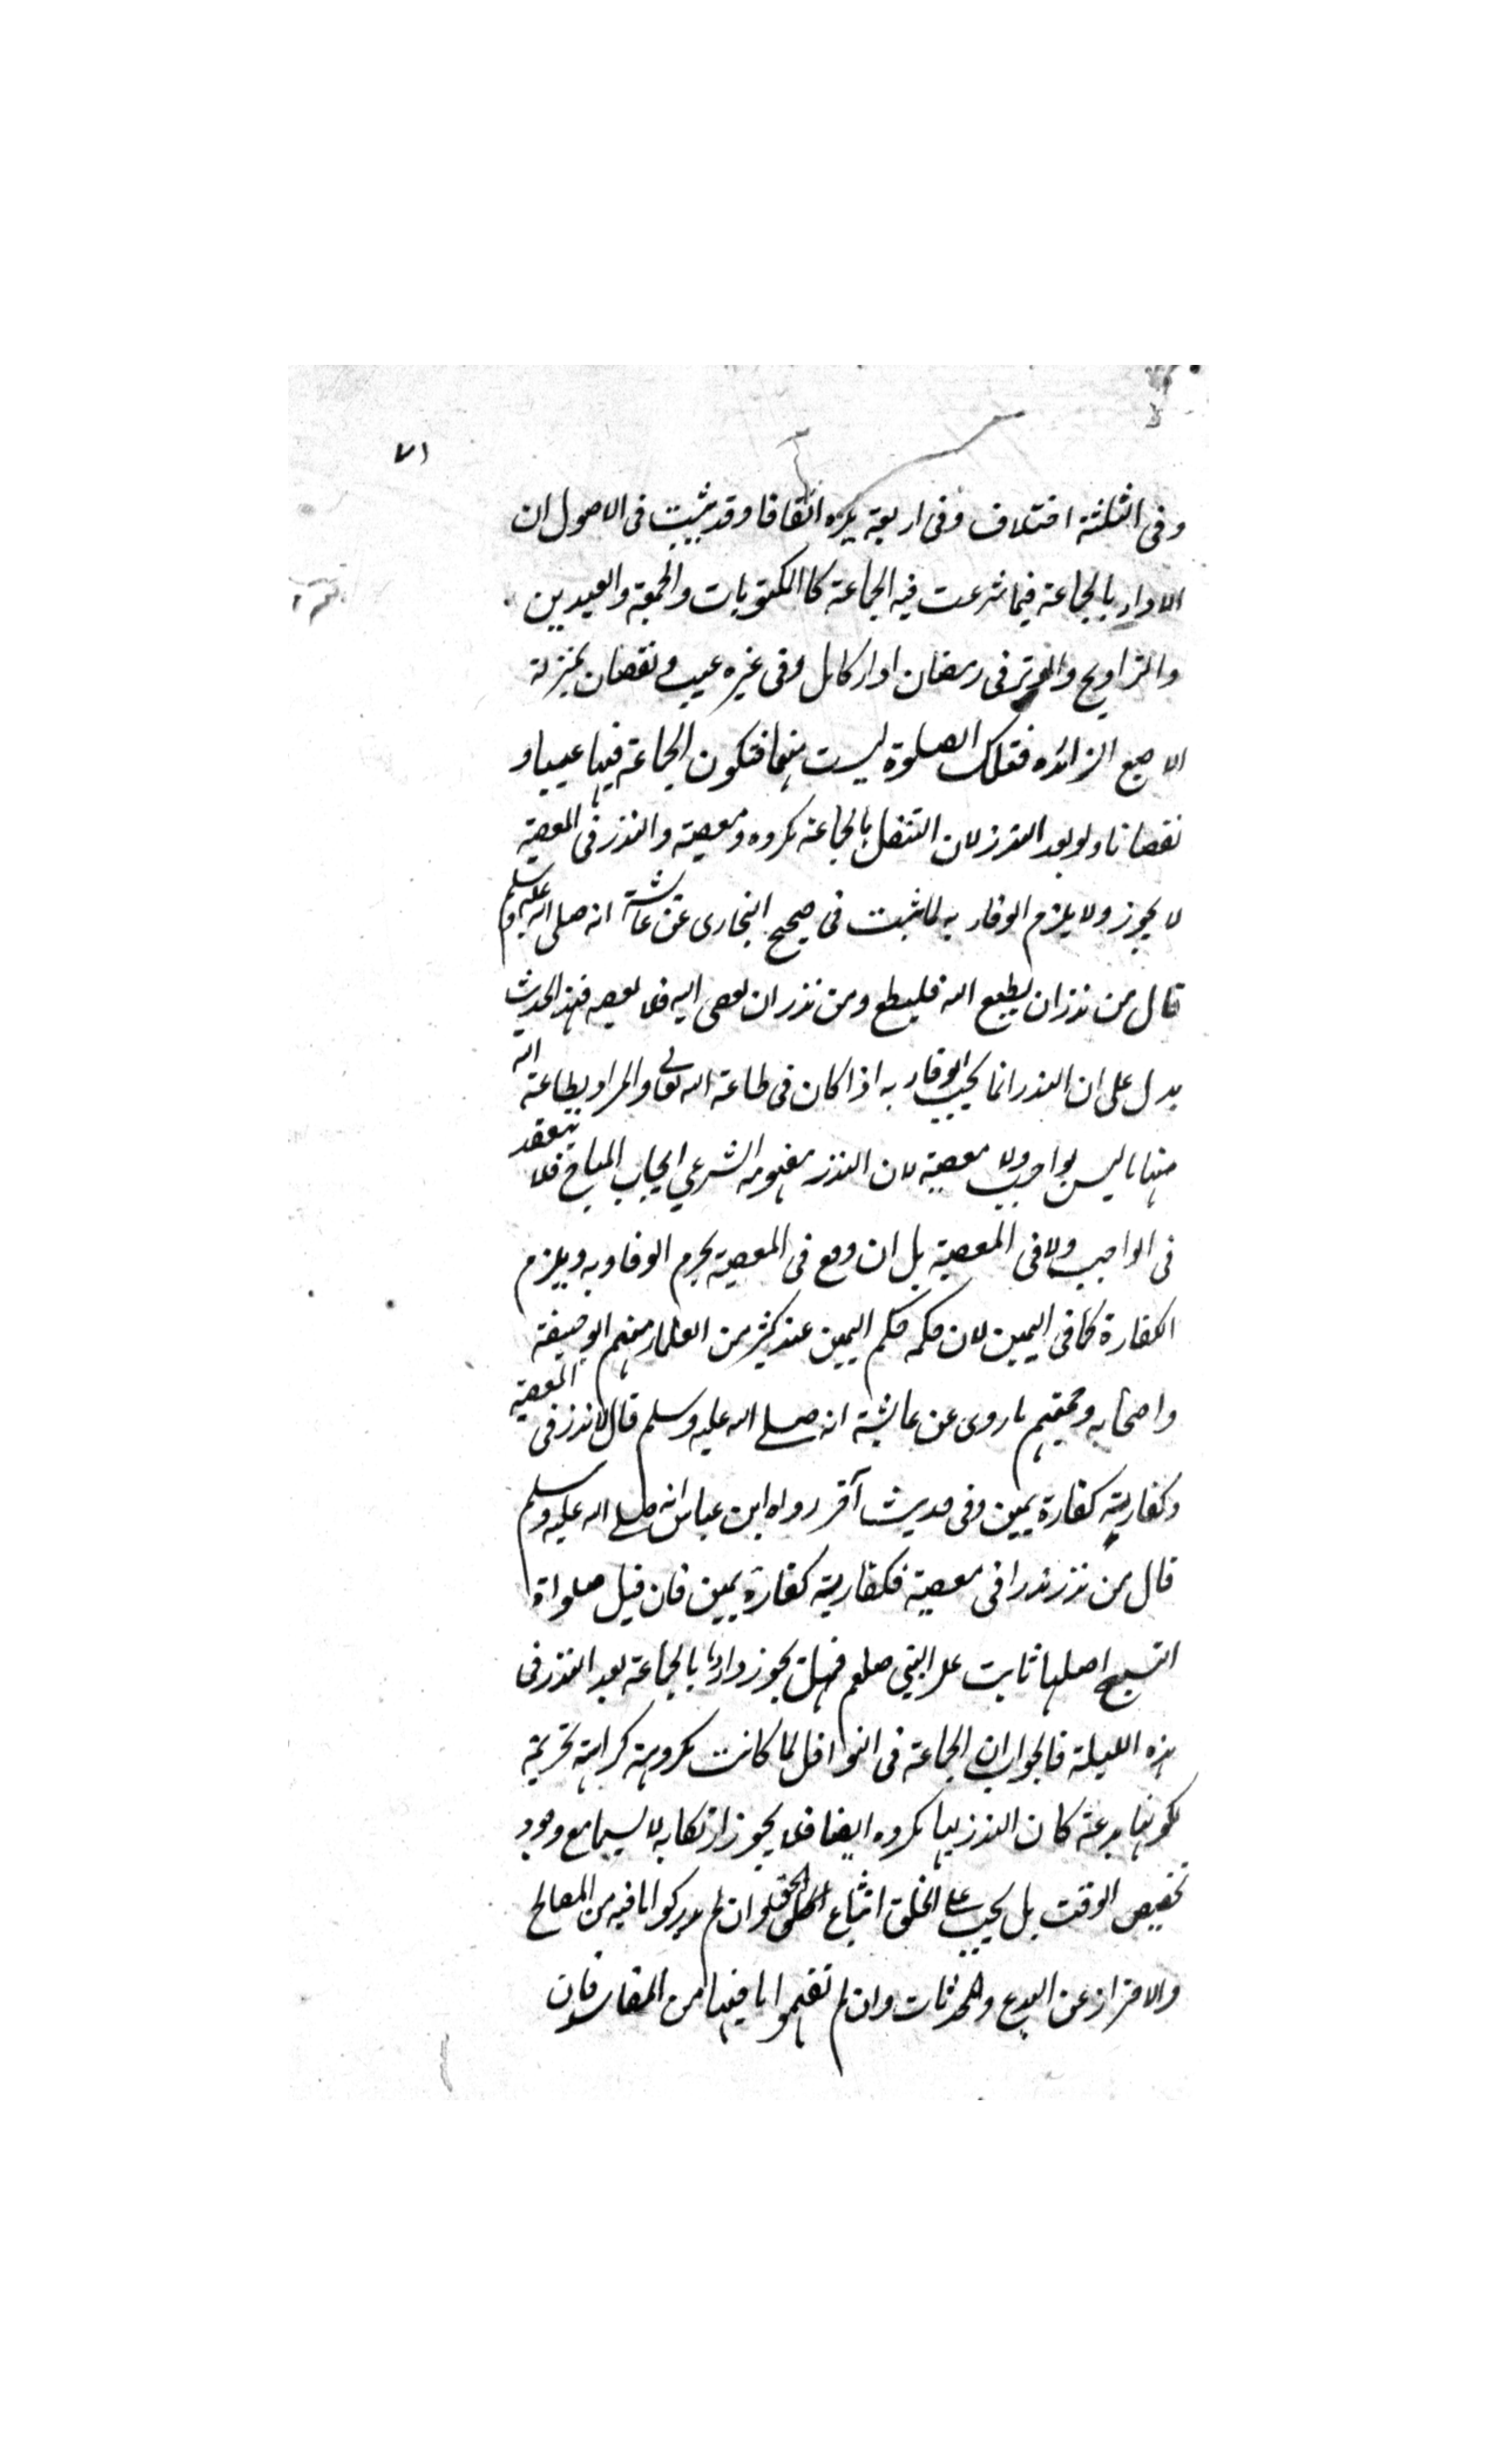 ٧١
وفى الثلثة اختلاف وفى اربعة يكره اتفاقا وقد ثبت فى الاصول ان
الاداء بالجماعة فيما شرعت فيه الجماعة كالمكتوبات والجمعة والعيدين
والتراويح والوتر فى رمضان اداء كامل وفى غيره عيب ونقصان بمنزلة
الاصبع الزائده فتلك الصلوة ليست منها فتكون الجماعة فيها عيبا و
نقصانا ولو بعد النذر لان التنفل بالجماعة مكروه ومعصية والنذر فى المعصية
لا يجوز ولا يلزم الوفاء به لما ثبت فى صحيح البخارى عن عائشة انه صلى الله عليه وسلم
قال من نذر ان يطيع الله فليطع ومن نذر ان يعصى الله فلا يعصه فهذا الحديث
يدل على ان النذر انما يجب الوفاء به اذا كان فى طاعة الله تعالى والمراد بطاعة الله
ههنا ما ليس بواجب ولا معصية لان النذر مفهومه الشرعي ايجاب المباح فلا ينعقد
فى الواجب ولا فى المعصية بل ان وقع فى المعصية يحرم الوفاء به ويلزم
الكفارة كما فى اليمين لان حكمه حكم اليمين عند كثير من العلماء منهم ابو حنيفة
واصحابه وحجتهم ما روى عن عايشة انه صلے الله عليه وسلم قال لا نذر فى المعصية
وكفارته كفارة يمين وفى حديث آخر رواه ابن عباس انه صلے الله عليه وسلم
قال من نذر نذرا فى معصية فكفارته كفارة يمين فان قيل صلواة
التسبيح اصلها ثابت عن النبي صلعم فهل يجوز اداؤها بالجماعة بعد النذر فى
هذه الليلة فالجواب ان الجماعة فى النوافل لما كانت مكروهة كراهة تحريمة
لكونها بدعة كان النذر بها مكروه ايضا فلا يجوز ارتكابه لا سيما مع وجود
تخصيص الوقت بل يجب على الخلق اتباع الحق وان لم يدركوا ما فيه من المصالح
والاحتراز عن البدع والمحدثات وان لم تفهموا ما فيها من المفاسد فان